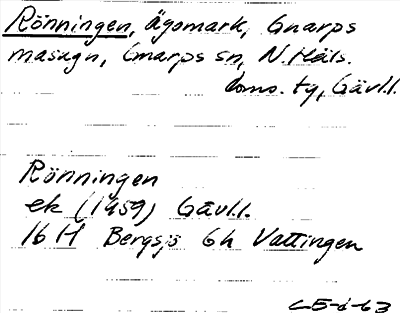 Rönningen, ägomark, Gnarps
masugn, Gnarps sn, N. Häls.
doms. tg, Gävl.l.
Rönningen
ek (1959) Gävl.l.
16 H Bergsjö 6h Vattingen